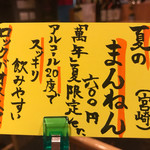 夏の
(宮崎)
まんねん
六〇〇円
「萬年」夏限定
アルコール20度で
スッキリ
飲みやすい
ロック